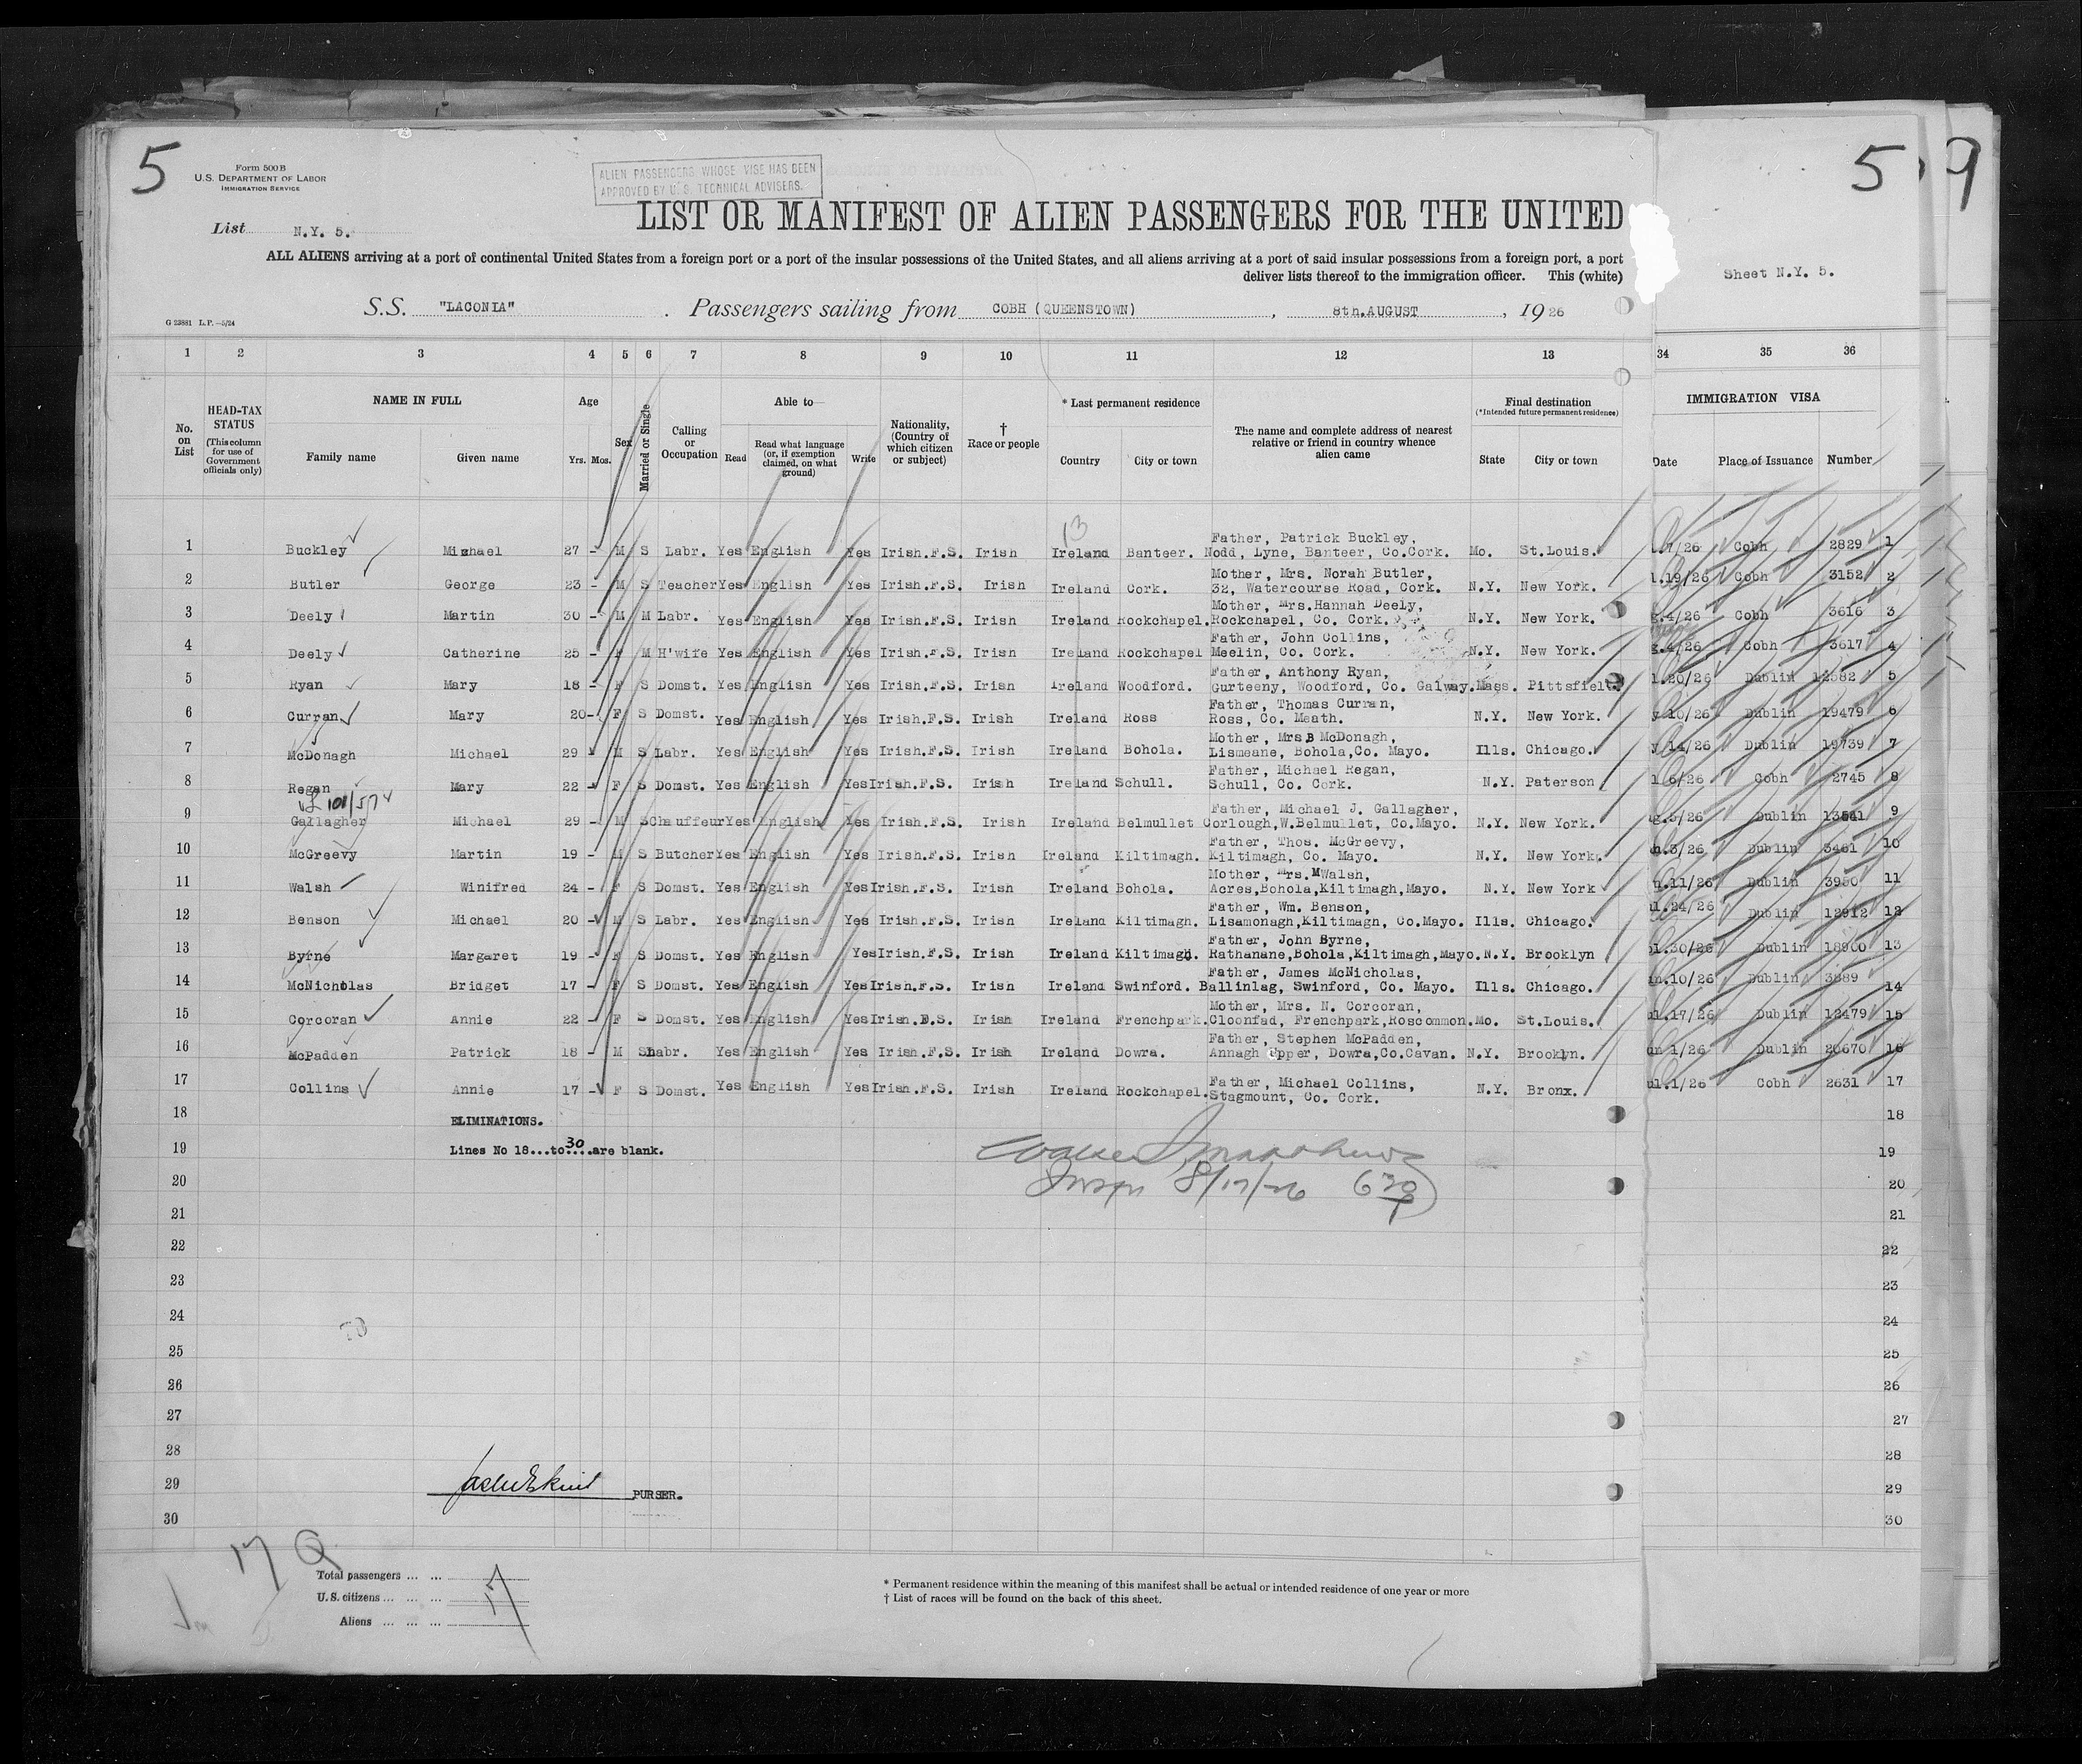 5
Form 500 B
U.S. DEPARTMENT OF LABOR
IMMIGRATION SERVICE
ALIEN PASSENGERS WHOSE VISE HAS BEEN
APPROVED BY U. S. TECHNICAL ADVISERS.
5
9
List N.Y. 5.
LIST OR MANIFEST OF ALIEN PASSENGERS FOR THE UNITED
ALL ALIENS arriving at a port of continental United States from a foreign port or a port of the insular possessions of the United States, and all aliens arriving at a port of said insular possessions from a foreign port, a port
deliver lists thereof to the immigration officer. This (white)
Sheet N.Y. 5.
S.S. "LACONIA". Passengers sailing from COBH (QUEENSTOWN), 8th.AUGUST, 1926
G 23881 L.P.—5/24
1 2 3 4 5 6 7 8 9 10 11 12 13 34 35 36
No. on List
HEAD-TAX STATUS (This column for use of Government officials only)
NAME IN FULL
Family name Given name
Age
Yrs. Mos.
Sex
Married or Single
Calling or Occupation
Able to—
Read Read what language (or, if exemption claimed, on what ground) Write
Nationality, (Country of which citizen or subject)
† Race or people
* Last permanent residence
Country City or town
The name and complete address of nearest relative or friend in country whence alien came
Final destination
(*Intended future permanent residence)
State City or town
IMMIGRATION VISA
Date Place of Issuance Number
13
Father, Patrick Buckley,
1 Buckley Michael 27 - M S Labr. Yes English Yes Irish.F.S. Irish Ireland Banteer. Nodd, Lyne, Banteer, Co.Cork. Mo. St.Louis. 7/26 Cobh 2829 1
Mother, Mrs. Norah Butler,
2 Butler George 23 - M S Teacher Yes English Yes Irish.F.S. Irish Ireland Cork. 32, Watercourse Road, Cork. N.Y. New York. 19/26 Cobh 3152 2
Mother, Mrs.Hannah Deely,
3 Deely Martin 30 - M M Labr. Yes English Yes Irish.F.S. Irish Ireland Rockchapel. Rockchapel, Co. Cork. N.Y. New York. g.4/26 Cobh 3616 3
Father, John Collins,
4 Deely Catherine 25 - F M H'wife Yes English Yes Irish.F.S. Irish Ireland Rockchapel Meelin, Co. Cork. N.Y. New York. g.4/26 Cobh 3617 4
Father, Anthony Ryan,
5 Ryan Mary 18 - F S Domst. Yes English Yes Irish.F.S. Irish Ireland Woodford. Gurteeny, Woodford, Co. Galway. Mass. Pittsfield. l.20/26 Dublin 12582 5
Father, Thomas Curran,
6 Curran Mary 20 - F S Domst. Yes English Yes Irish.F.S. Irish Ireland Ross Ross, Co. Meath. N.Y. New York. y 10/26 Dublin 19479 6
Mother, Mrs B McDonagh,
7 McDonagh Michael 29 - M S Labr. Yes English Yes Irish.F.S. Irish Ireland Bohola. Lismeane, Bohola,Co. Mayo. Ills. Chicago. y 14/26 Dublin 19739 7
Father, Michael Regan,
8 Regan Mary 22 - F S Domst. Yes English Yes Irish.F.S. Irish Ireland Schull. Schull, Co. Cork. N.Y. Paterson l 6/26 Cobh 2745 8
101/574
Father, Michael J. Gallagher,
9 Gallagher Michael 29 - M S Chauffeur Yes English Yes Irish.F.S. Irish Ireland Belmullet Corlough,W.Belmullet, Co.Mayo. N.Y. New York. Dublin 9
Father, Thos. McGreevy,
10 McGreevy Martin 19 - M S Butcher Yes English Yes Irish.F.S. Irish Ireland Kiltimagh. Kiltimagh, Co. Mayo. N.Y. New York. n.3/26 Dublin 3461 10
Mother, Mrs.M Walsh,
11 Walsh Winifred 24 - F S Domst. Yes English Yes Irish.F.S. Irish Ireland Bohola. Acres,Bohola,Kiltimagh,Mayo. N.Y. New York n.11/26 Dublin 3950 11
Father, Wm. Benson,
12 Benson Michael 20 - M S Labr. Yes English Yes Irish.F.S. Irish Ireland Kiltimagh. Lisamonagh,Kiltimagh, Co.Mayo. Ills. Chicago. ul.24/26 Dublin 12912 12
Father, John Byrne,
13 Byrne Margaret 19 - F S Domst. Yes English Yes Irish.F.S. Irish Ireland Kiltimagh. Rathanane,Bohola,Kiltimagh,Mayo. N.Y. Brooklyn 30/26 Dublin 18900 13
Father, James McNicholas,
14 McNicholas Bridget 17 - F S Domst. Yes English Yes Irish.F.S. Irish Ireland Swinford. Ballinlag, Swinford, Co. Mayo. Ills. Chicago. an.10/26 Dublin 3889 14
Mother, Mrs. N. Corcoran,
15 Corcoran Annie 22 - F S Domst. Yes English Yes Irish.F.S. Irish Ireland Frenchpark. Cloonfad, Frenchpark,Roscommon. Mo. St.Louis. ul.17/26 Dublin 12479 15
Father, Stephen McPadden,
16 McPadden Patrick 18 - M S Labr. Yes English Yes Irish.F.S. Irish Ireland Dowra. Annagh Upper, Dowra,Co.Cavan. N.Y. Brooklyn. un 1/26 Dublin 20670 16
Father, Michael Collins,
17 Collins Annie 17 - F S Domst. Yes English Yes Irish.F.S. Irish Ireland Rockchapel. Stagmount, Co. Cork. N.Y. Bronx. ul.1/26 Cobh 2631 17
18 ELIMINATIONS. 18
19 Lines No 18...to 30 are blank. 19
20 8/17/26 20
21 21
22 22
23 23
24 24
25 25
26 26
27 27
28 28
29 PURSER. 29
30 30
17 Q
Total passengers ... ...
U.S. citizens ... ... ... 17
Aliens ... ... ...
* Permanent residence within the meaning of this manifest shall be actual or intended residence of one year or more
† List of races will be found on the back of this sheet.